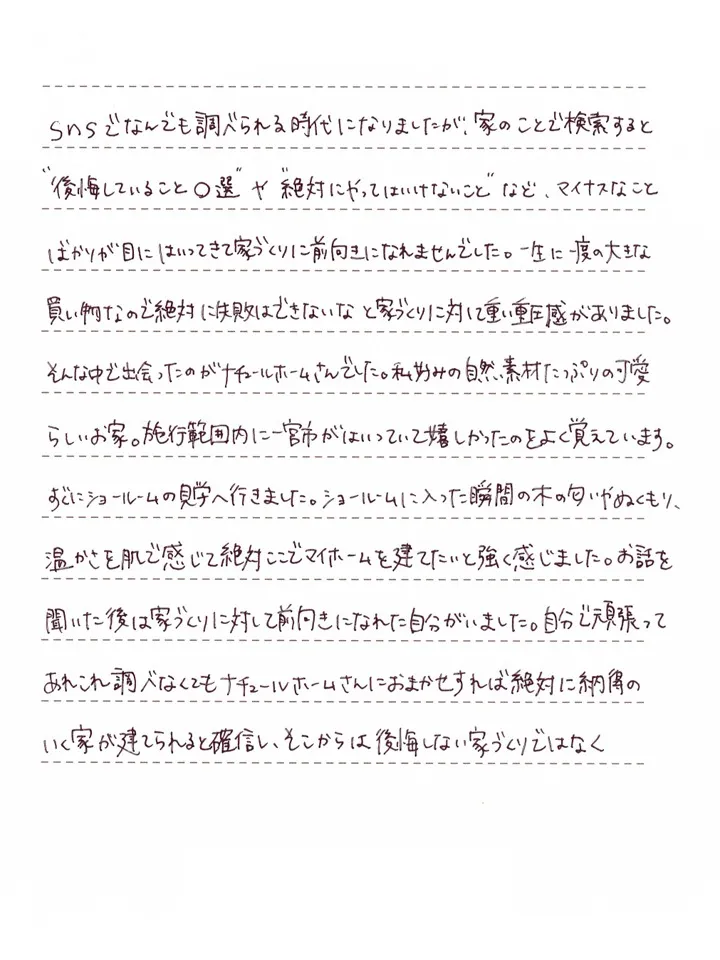 snsでなんでも調べられる時代になりましたが、家のことで検索すると
"後悔していること○選"や"絶対にやってはいけないこと"など、マイナスなこと
ばかりが目にはいってきて家づくりに前向きになれませんでした。一生に一度の大きな
買い物なので絶対に失敗はできないなと家づくりに対して重い重圧感がありました。
そんな中で出会ったのがナチュールホームさんでした。私好みの自然素材たっぷりの可愛
らしいお家。施行範囲内に一宮市がはいっていて嬉しかったのをよく覚えています。
すぐにショールームの見学へ行きました。ショールームに入った瞬間の木の匂いやぬくもり、
温かさを肌で感じて絶対ここでマイホームを建てたいと強く感じました。お話を
聞いた後は家づくりに対して前向きになれた自分がいました。自分で頑張って
あれこれ調べなくてもナチュールホームさんにおまかせすれば絶対に納得の
いく家が建てられると確信し、そこからは後悔しない家づくりではなく